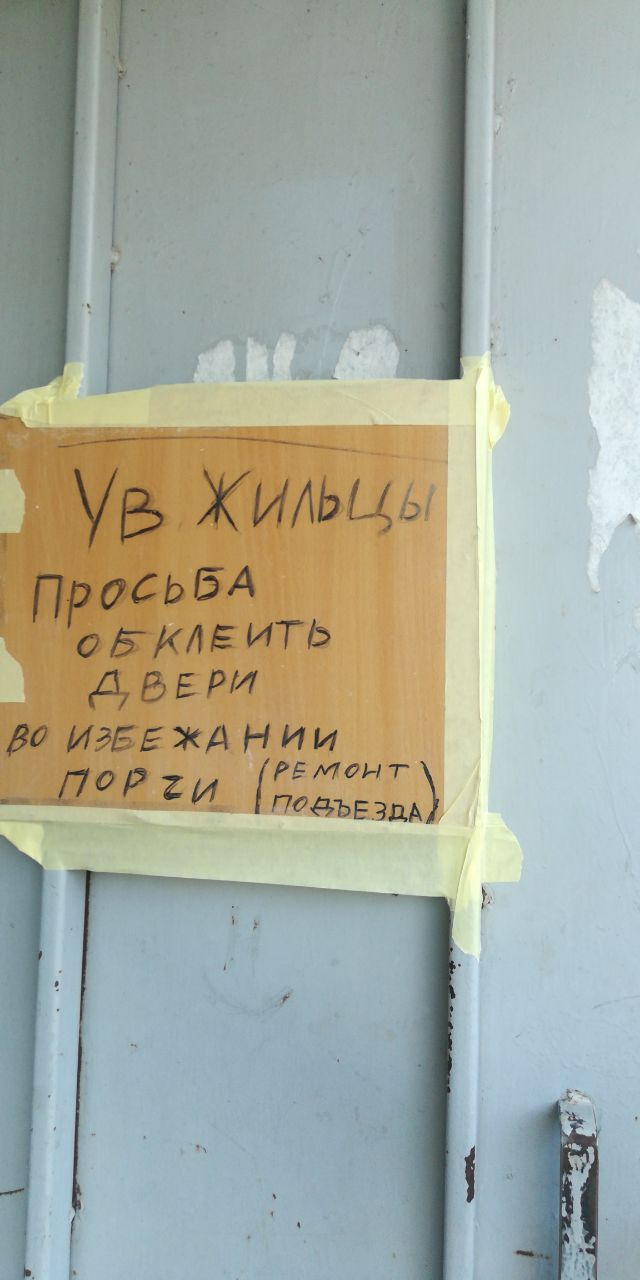 УВ ЖИЛЬЦЫ
ПРОСЬБА
ОБКЛЕИТЬ
ДВЕРИ
ВО ИЗБЕЖАНИИ
ПОРЧИ
(РЕМОНТ
ПОДЪЕЗДА)